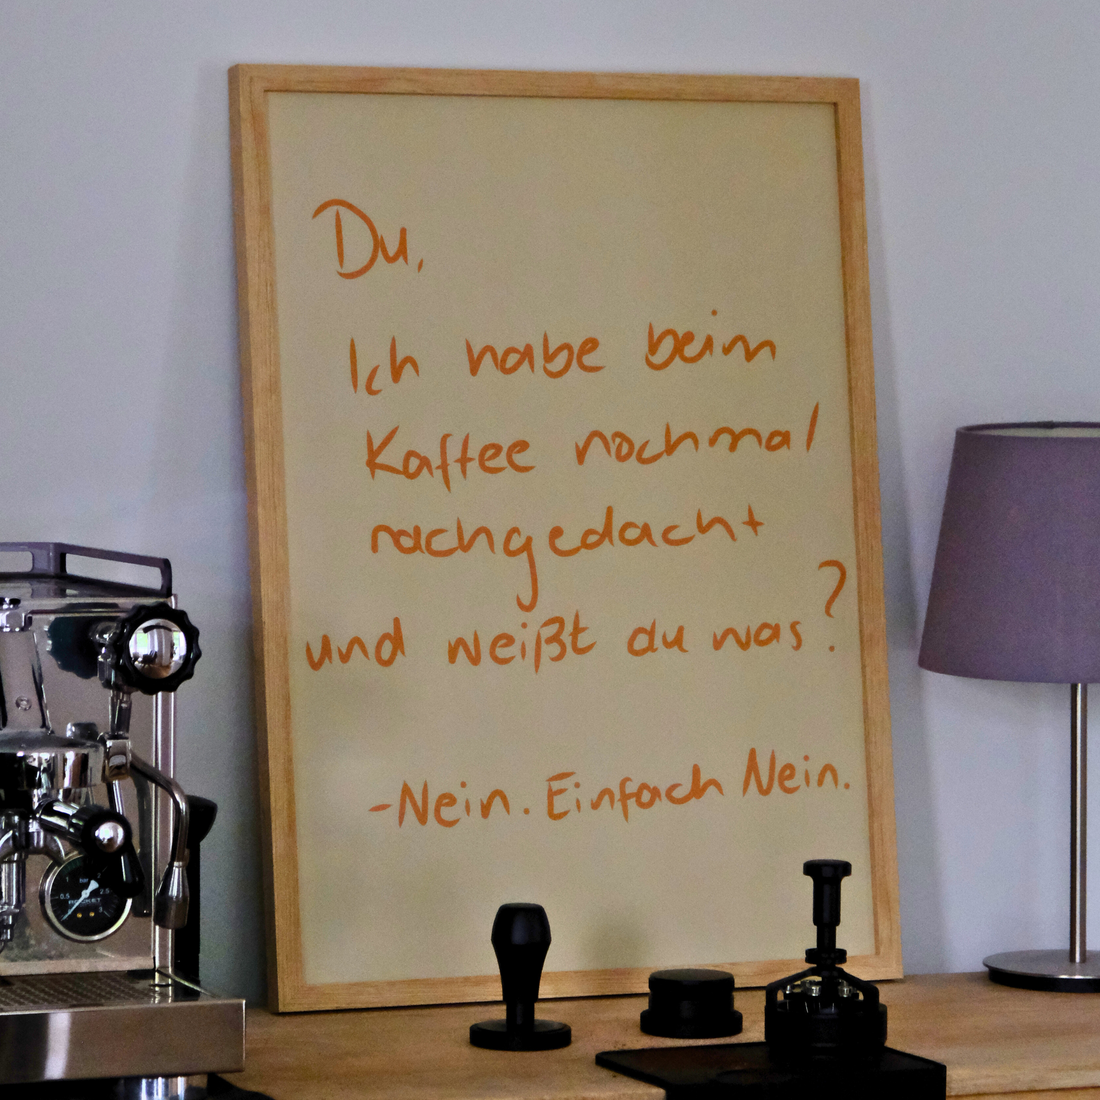 Du,
Ich habe beim
Kaffee nochmal
nachgedacht
und weißt du was?
-Nein. Einfach Nein.
bar
0.5
1
2.5
3